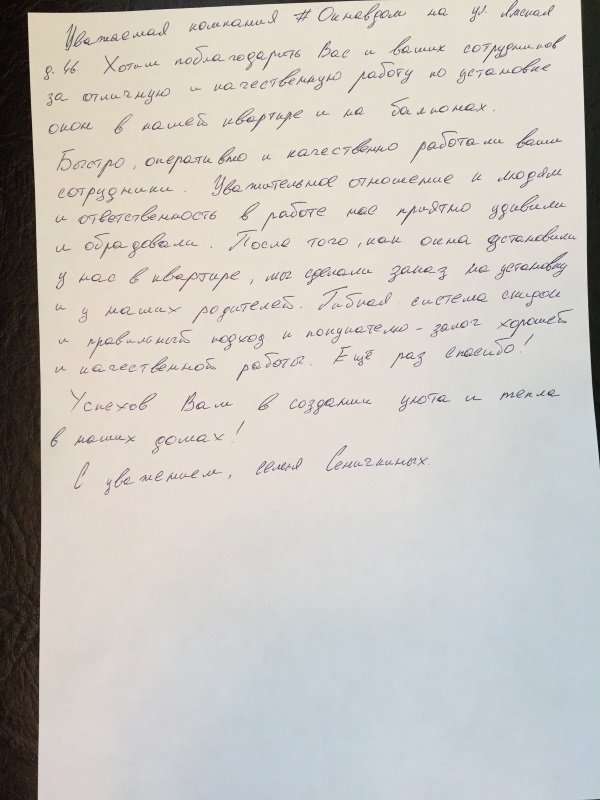 Уважаемая компания #Окнавдом на ул. Ямская
д. 46 Хотим поблагодарить Вас и ваших сотрудников
за отличную и качественную работу по установке
окон в нашей квартире и на балконах.
Быстро, оперативно и качественно работали ваши
сотрудники. Уважительное отношение к людям
и ответственность в работе нас приятно удивили
и обрадовали. После того, как окна установили
у нас в квартире, мы сделали заказ на установку
и у наших родителей. Гибкая система скидок
и правильный подход к покупателю – залог хорошей
и качественной работы. Ещё раз спасибо!
Успехов Вам в создании уюта и тепла
в наших домах!
С уважением, семья Сеничкиных.